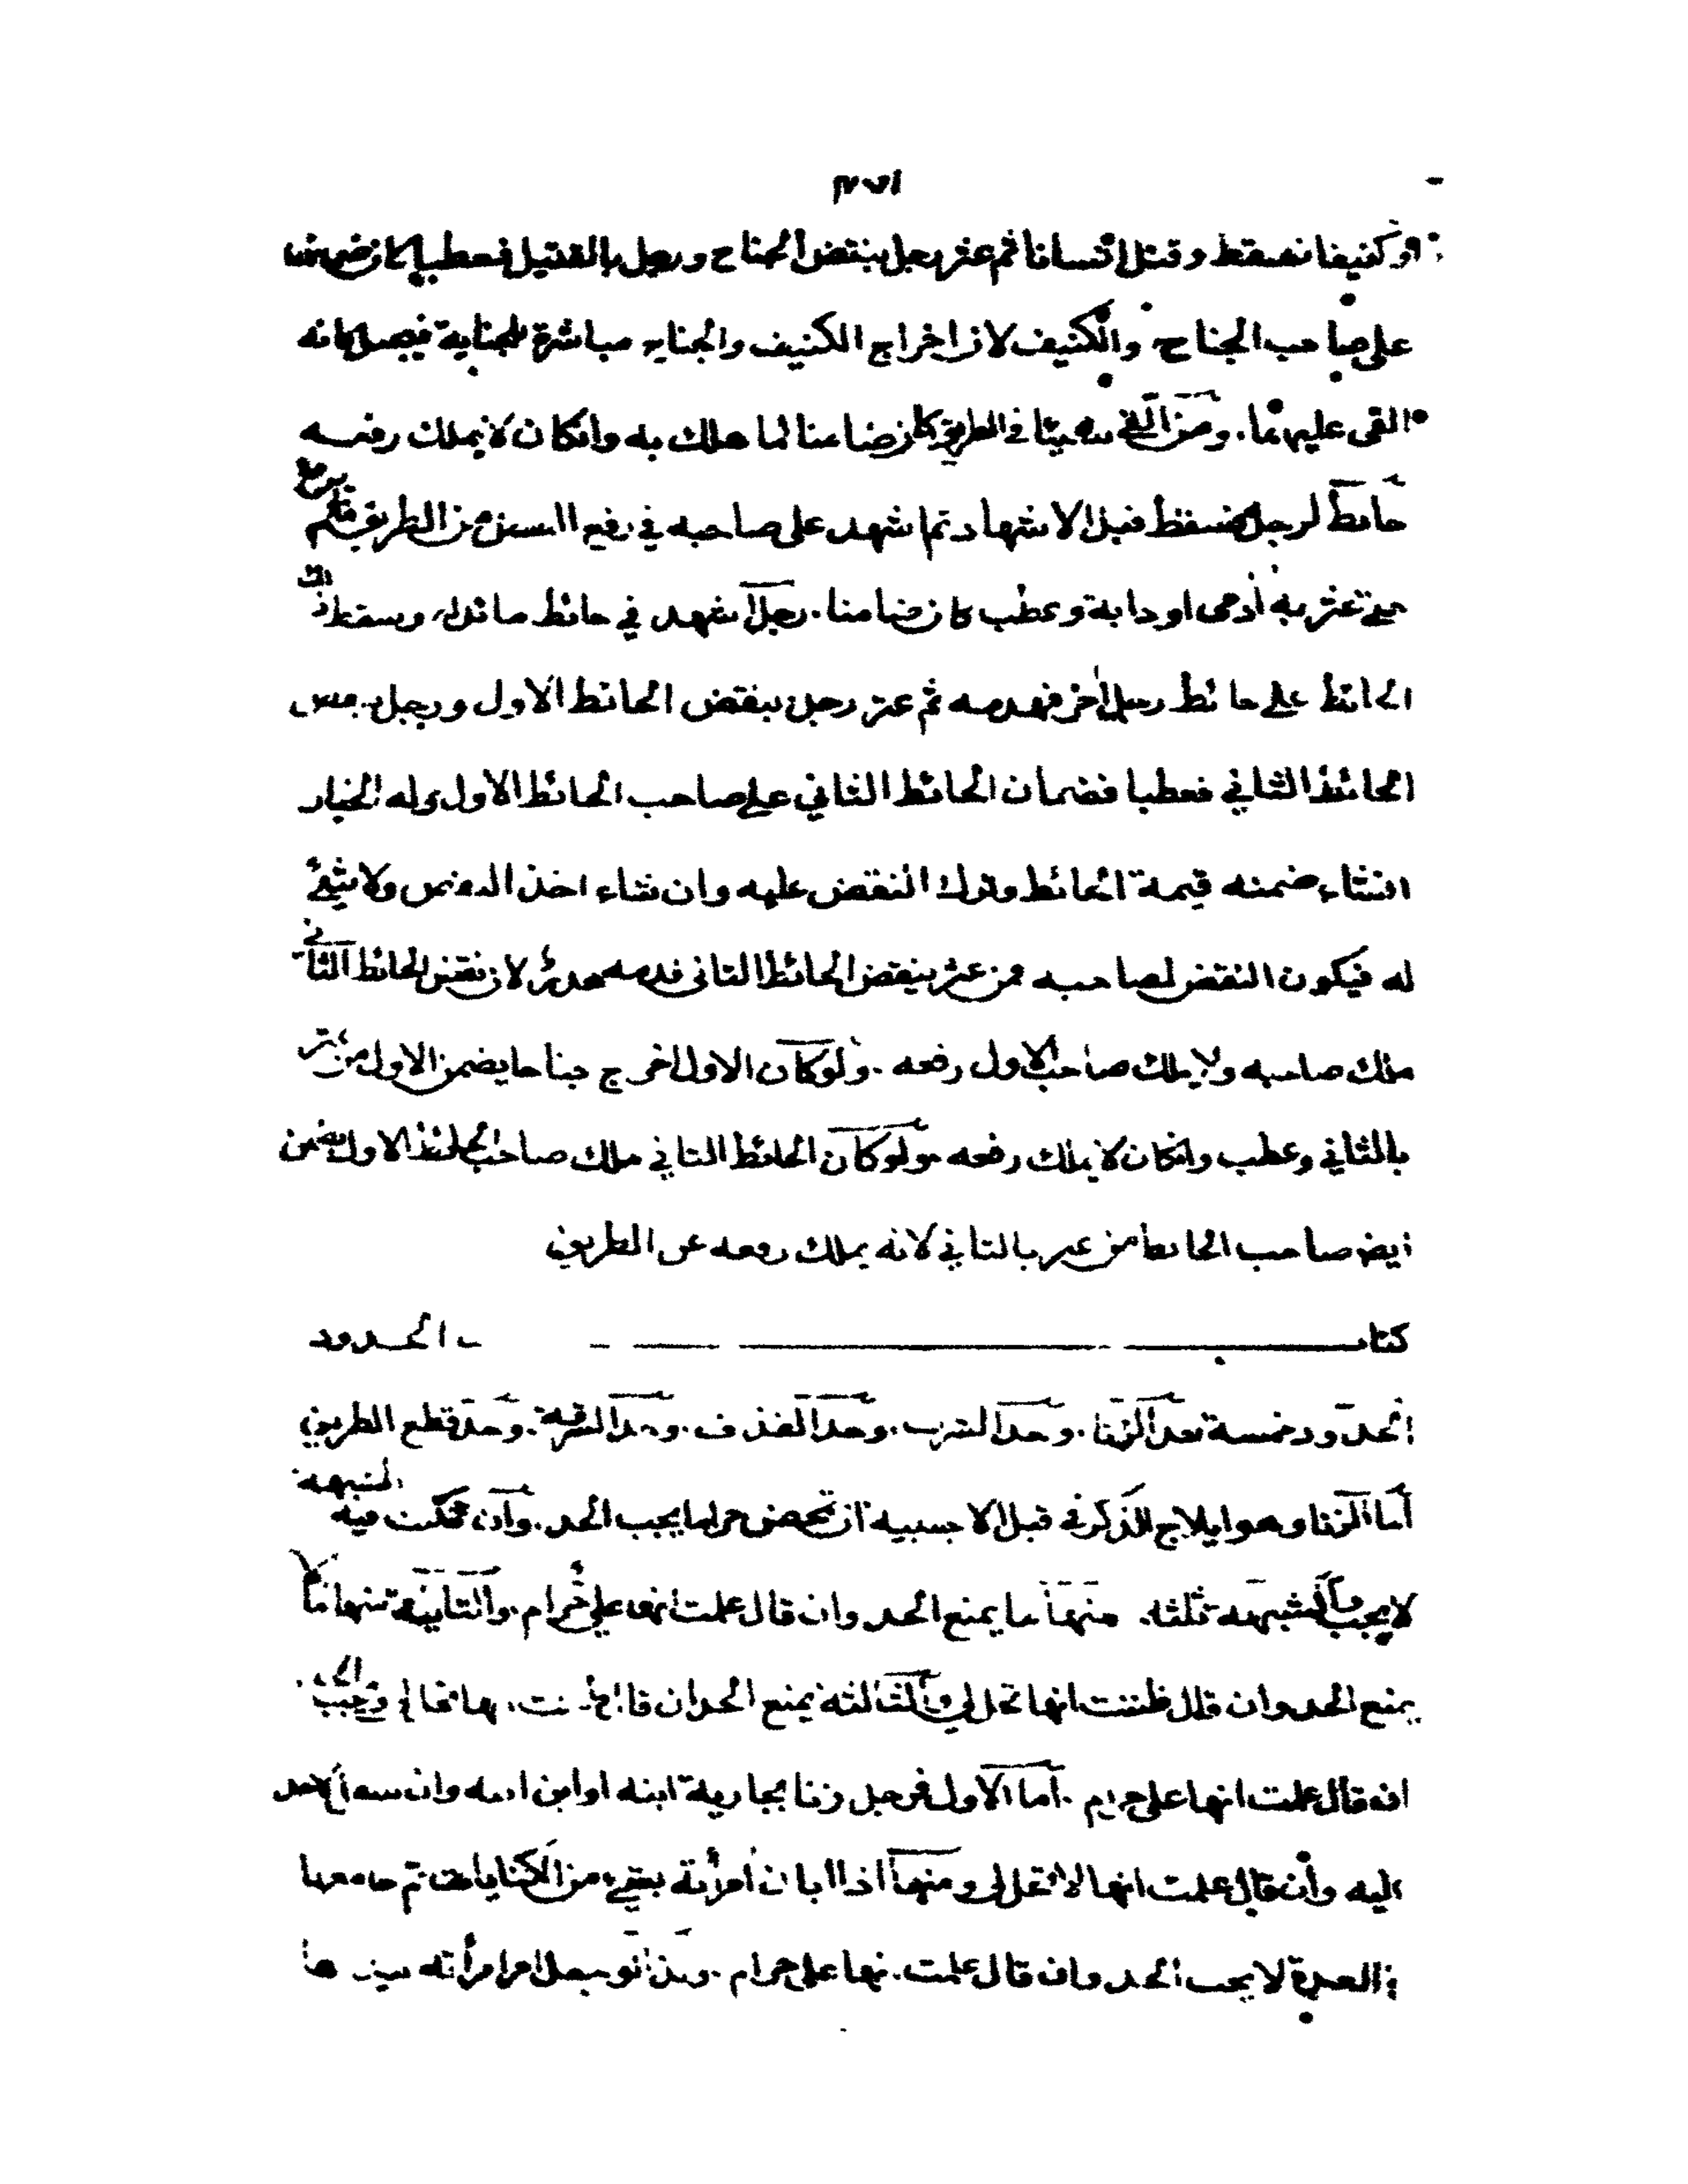 او كنيفا فسقط وقتل انسانا ثم عثر رجل بنقض الجناح ورجل بالقتيل فعطبا كان ضمان
على صاحب الجناح والكنيف لان اخراج الكنيف والجناح مباشرة للجناية فيصير كانه
القى عليهما. ومن القى شيئا في الطريق كان ضامنا لما هلك به وان كان لا يملك رفعه
حائط لرجل فسقط قبل الاشهاد ثم اشهد على صاحبه في رفع من الطريق فلم يرفع
حتى عثر به ادمى او دابة وعطب كان ضامنا. رجل اشهد في حائط مائل وسقط ذلك
الحائط على حائط رجل اخر فهدمه ثم عثر رجل بنقض الحائط الاول ورجل بنقض
الحائط الثاني فعطبا فضمان الحائط الثاني على صاحب الحائط الاول وله الخيار
ان شاء ضمنه قيمة الحائط وترك النقض عليه وان شاء اخذ النقض ولا شئ
له فيكون النقض لصاحبه فمن عثر بنقض الحائط الثاني فدمه هدر لان نقض الحائط الثاني
ملك صاحبه ولا يملك صاحب الاول رفعه . ولو كان الاول اخرج جناحا يضمن الاول من عثر
بالثاني وعطب وان كان لا يملك رفعه ولو كان الحائط الثاني ملك صاحب الحائط الاول يضمن
ايضا صاحب الحائط من عثر بالثاني لانه يملك رفعه عن الطريق
كتاب الحدود
الحدود خمسة حد الزنا. وحد الشرب. وحد القذف. وحد السرقة. وحد قطع الطريق
اما الزنا وهو ايلاج الذكر في قبل الاجنبية ان تمحض حراما يجب الحد. وان تمكنت فيه الشبهة
لا يجب والشبهة ثلثة. منها ما يمنع الحد وان قال علمت انها على حرام. والثانية منها ما لا
يمنع الحد وان قال ظننت انها تحل لي والثالثة يمنع الحد ان قال ظننت انها تحل لي ويجب الحد
ان قال علمت انها على حرام . اما الاول فرجل زنا بجارية ابنه او ابن ابنه وان
اليه وان قال علمت انها لا تحل لي ومنها اذا ابان امرأته بشيء من الكنايات ثم جامعها
في العدة لا يجب الحد وان قال علمت انها على حرام . وكذا لو جعل امر امرأته بيدها